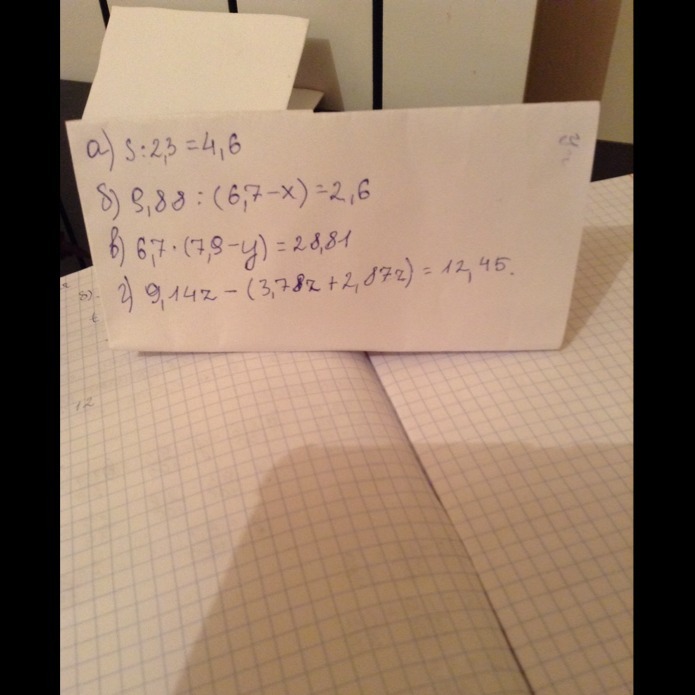 а) s:2,3=4,6
б) 9,88:(6,7-x)=2,6
в) 6,7·(7,9-y)=28,81
г) 9,14z-(3,78z+2,87z)=12,45.
12